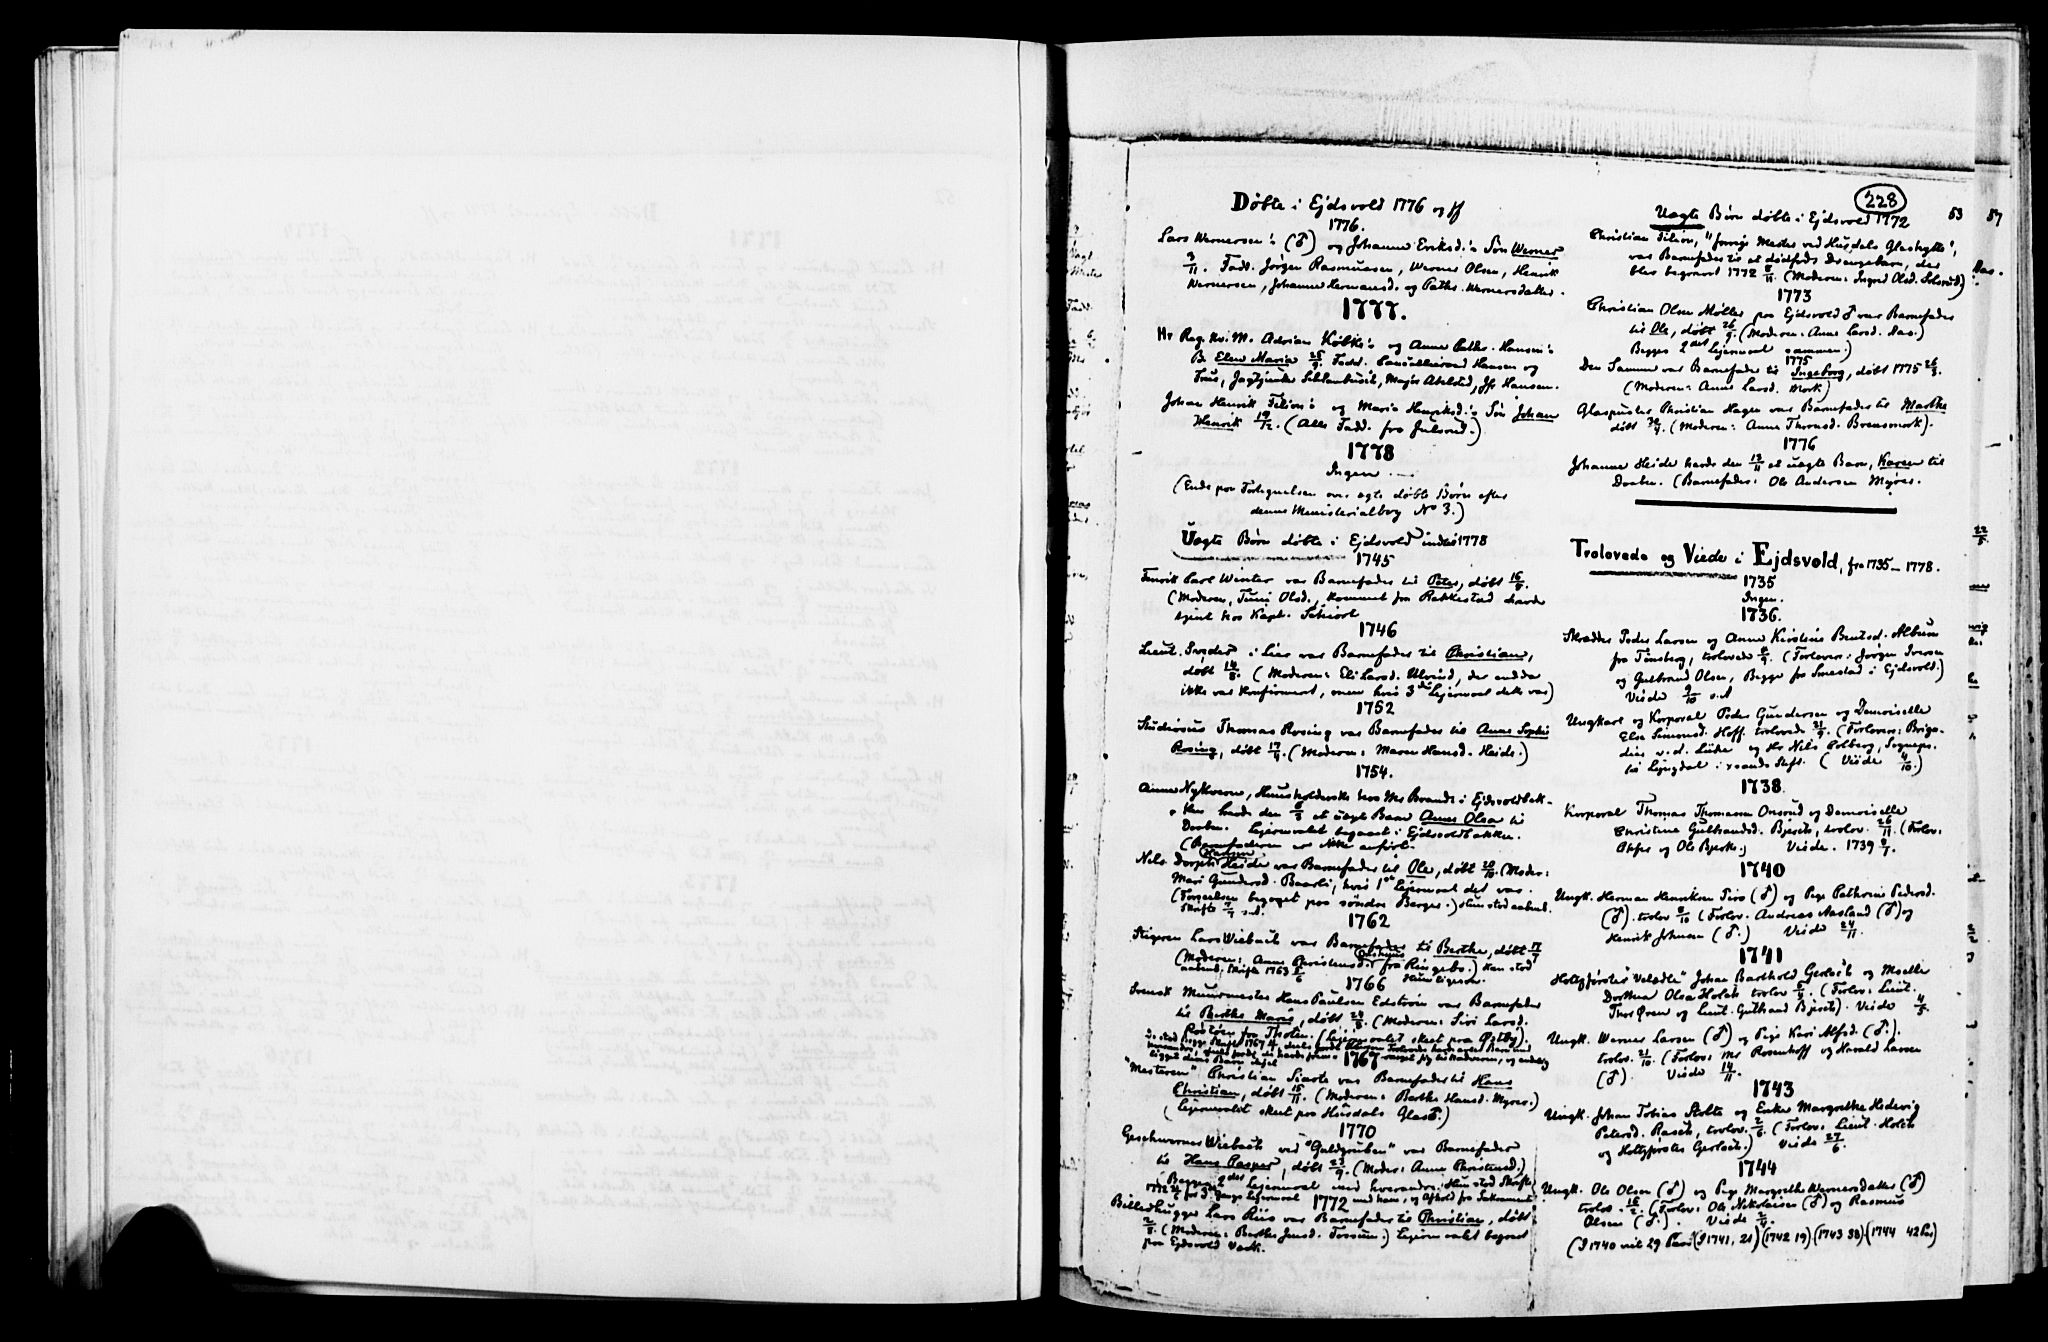 228
53
57
Døbte i Ejdsvold 1776 og ff
1776.
Lars Wernersen's (♂) og Johanne Eriksd.'s Søn Werner
3/11. Fadd. Jørgen Rasmussen, Werner Olsen, Henrik
Wernersen, Johanne Hermansd. og Cathr. Wernersdatter.
1777.
Hr Reg. Kv. M. Adrian Købke's og Anne Cathr. Hansen's
B. Elen Maria 25/9. Fadd. Cancelliraad Hansen og
Frue, Jagtjunker Schlanbusch, Major Abelsted, Jfr Hansen.
Johan Henrik Filion's og Maria Henriksd.'s Søn Johan
Henrik 19/12. (Alle Fadd. fra Julsrud.)
1778
Ingen
(Ende paa Fortegnelsen over ægte døbte Børn efter
denne Ministerialbog No 3.)
Uægte Børn døbte i Ejdsvold indtil 1778
1745
Fenrik Carl Winter var Barnefader til Peter, døbt 16/5.
(Moderen, Turi Olsd., kommet fra Rakkestad havde
tjent hos Kapt. Schiort
1746
Lieut. Snyder i Lier var Barnefader til Christian,
døbt 14/8. (Moderen: Eli Larsd. Ulvind, der endda
ikke var konfirmert, men hvis 3die Lejermaal dette var)
1752
Studiosus Thomas Rosing var Barnefader til Anne Sophie
Rosing, døbt 17/9. (Moderen: Maren Hansd. Heide.)
1754.
Anne Nykvern, Huusholderske hos Mr Brandt i Ejdsvoldbak-
ken havde den 8/3 et uægt Barn Anne Olea til
Daaben. Lejermaalet begaaet i Ejdsvoldbakken.
(Barnefaderen er ikke anført.
Nels Dorph Hansen Heide var Barnefader til Ole, døbt 20/10. (Moder:
Mari Gundersd. Baarli, hvis 1ste Lejermaal det var.
(Forseelsen begaaet paa søndre Berger.) Hun stod aabenb.
Skrifte
1762
Stigeren Lars Wiebach var Barnefader til Berthe, døbt 17/1
(Moderen: Anne Christensd. fra Ringebo.) Han stod
aabenb. Skrifte 1763 Hun ligesaa.
1766
Svensk Muurmester Hans Paulsen Edstrøm var Barnefader
til Berthe Marie, døbt 24/8. (Moderen: Siri Larsd.
fra Thoten. (Lejermaalet skeet paa Østby).
1767
"Mesteren" Christian Siarte var Barnefader til Hans
Christian, døbt 15/11. (Moderen: Berthe Hansd. Myrer.)
(Lejermaalet skeet paa Hurdals Glasv.)
1770
Geschworner Wiebach ved "Guldgruben" var Barnefader
til Hans Casper, døbt 23/9. (Moder: Anne Christensd.)
Begges 2det Lejermaal med hverandre. Hun stod Skrifte
for 3die Gangs Lejermaal med ham, og Afhold fra Sakrament
1772
Billedhugger Lars Riis var Barnefader til Christian, døbt
2/8. (Moderen: Berthe Jensd. Fossum.) Lejermaalet begaaet
paa Ejdsvold Værk.
Uægte Børn døbte i Ejdsvold 1772
Christian Filion, "forrige Mester ved Hurdals Glashytte",
var Barnefader til et dødfødt Drengebarn, der
blev begravet 1772 8/11. (Moderen: Ingrid Olsd. Solsrud)
1773
Christian Olsen Møller paa Ejdsvold ♂ var Barnefader
til Ole, døbt 26/9. (Moderen: Anne Larsd. Aas.)
Begges 2det Lejermaal sammen.)
1775
Den Samme var Barnefader til Ingeborg, døbt 1775 26/3.
(Moderen: Anne Larsd. Mork)
Glaspuster Christian Hagen var Barnefader til Marthe
døbt 30/9. (Moderen: Anne Thronsd. Brensmork).
1776
Johanne Heide havde den 12/11 et uægte Barn, Karen til
Daaben. (Barnefader: Ole Andersen Myrer.
Trolovede og Viede i Ejdsvold, fra 1735 – 1778.
1735
Ingen.
1736.
Skrædder Peder Larsen og Anne Kirstine Bentsd. Album
fra Tønsberg, trolovede 8/9. (Forlover: Jørgen Iversen
og Gulbrand Olsen, Begge fra Smestad i Ejdsvold.)
Viede 9/10 s. A
Ungkarl og Korporal Peder Gundersen og Demoiselle
Else Simonsd. Hoff. trolovede 21/9. (Forlovere: Briga-
dier v. d. Lühe og Hr Nils Colberg, Sognepr.
til Lyngdal i xsands Stift. (Viede 4/10.)
1738.
Korporal Thomas Thomasen Onsrud og Demoiselle
Christine Gulbrandsd. Bjerke, trolov. 26/11. (Forlov:
og Ole Bjerke.) Viede. 1739 8/1.
1740
Ungk. Herman Henriksen Firo (♂) og Pige Cathrine Pedersd.
(♂). trolov 8/10 (Forlov. Andreas Aasland (♂) og
Henrik Johnsen (♂.) Viede 24/11.
1741
Holtzførster "Velædle" Johan Barthold Gerlach og Mselle
Dorthea Olea Holck trolov 5/4. (Forlov: Lieut.
Thor Ørens og Lieut. Gulbrand Bjerke). Viede 4/5.
Ungk. Werner Larsen (♂) og Pige Kari Alfsd. (♂.).
trolov. 21/10. (Forlov: Mr Rosenhoff og Harald Larsen
(♂). Viede 14/11.
1743
Ungk. Johan Tobias Stolte og Enke Margrethe Hedevig
Petersd. Rasch, trolov. 2/6. (Forlov: Lieut. Holck
og Holtzførster Gerlach.) Viede 27/6.
1744
Ungk. Ole Olsen (♂) og Pige Margrethe Wernersdatter (♂)
trolov. 16/2. (Forlov: Ole Nikolaisen (♂) og Rasmus
Olsen (♂). Viede
(I 1740 viet 29 Par) (I 1741, 21) (1742 19) (1743 38) (1744 42 Par)